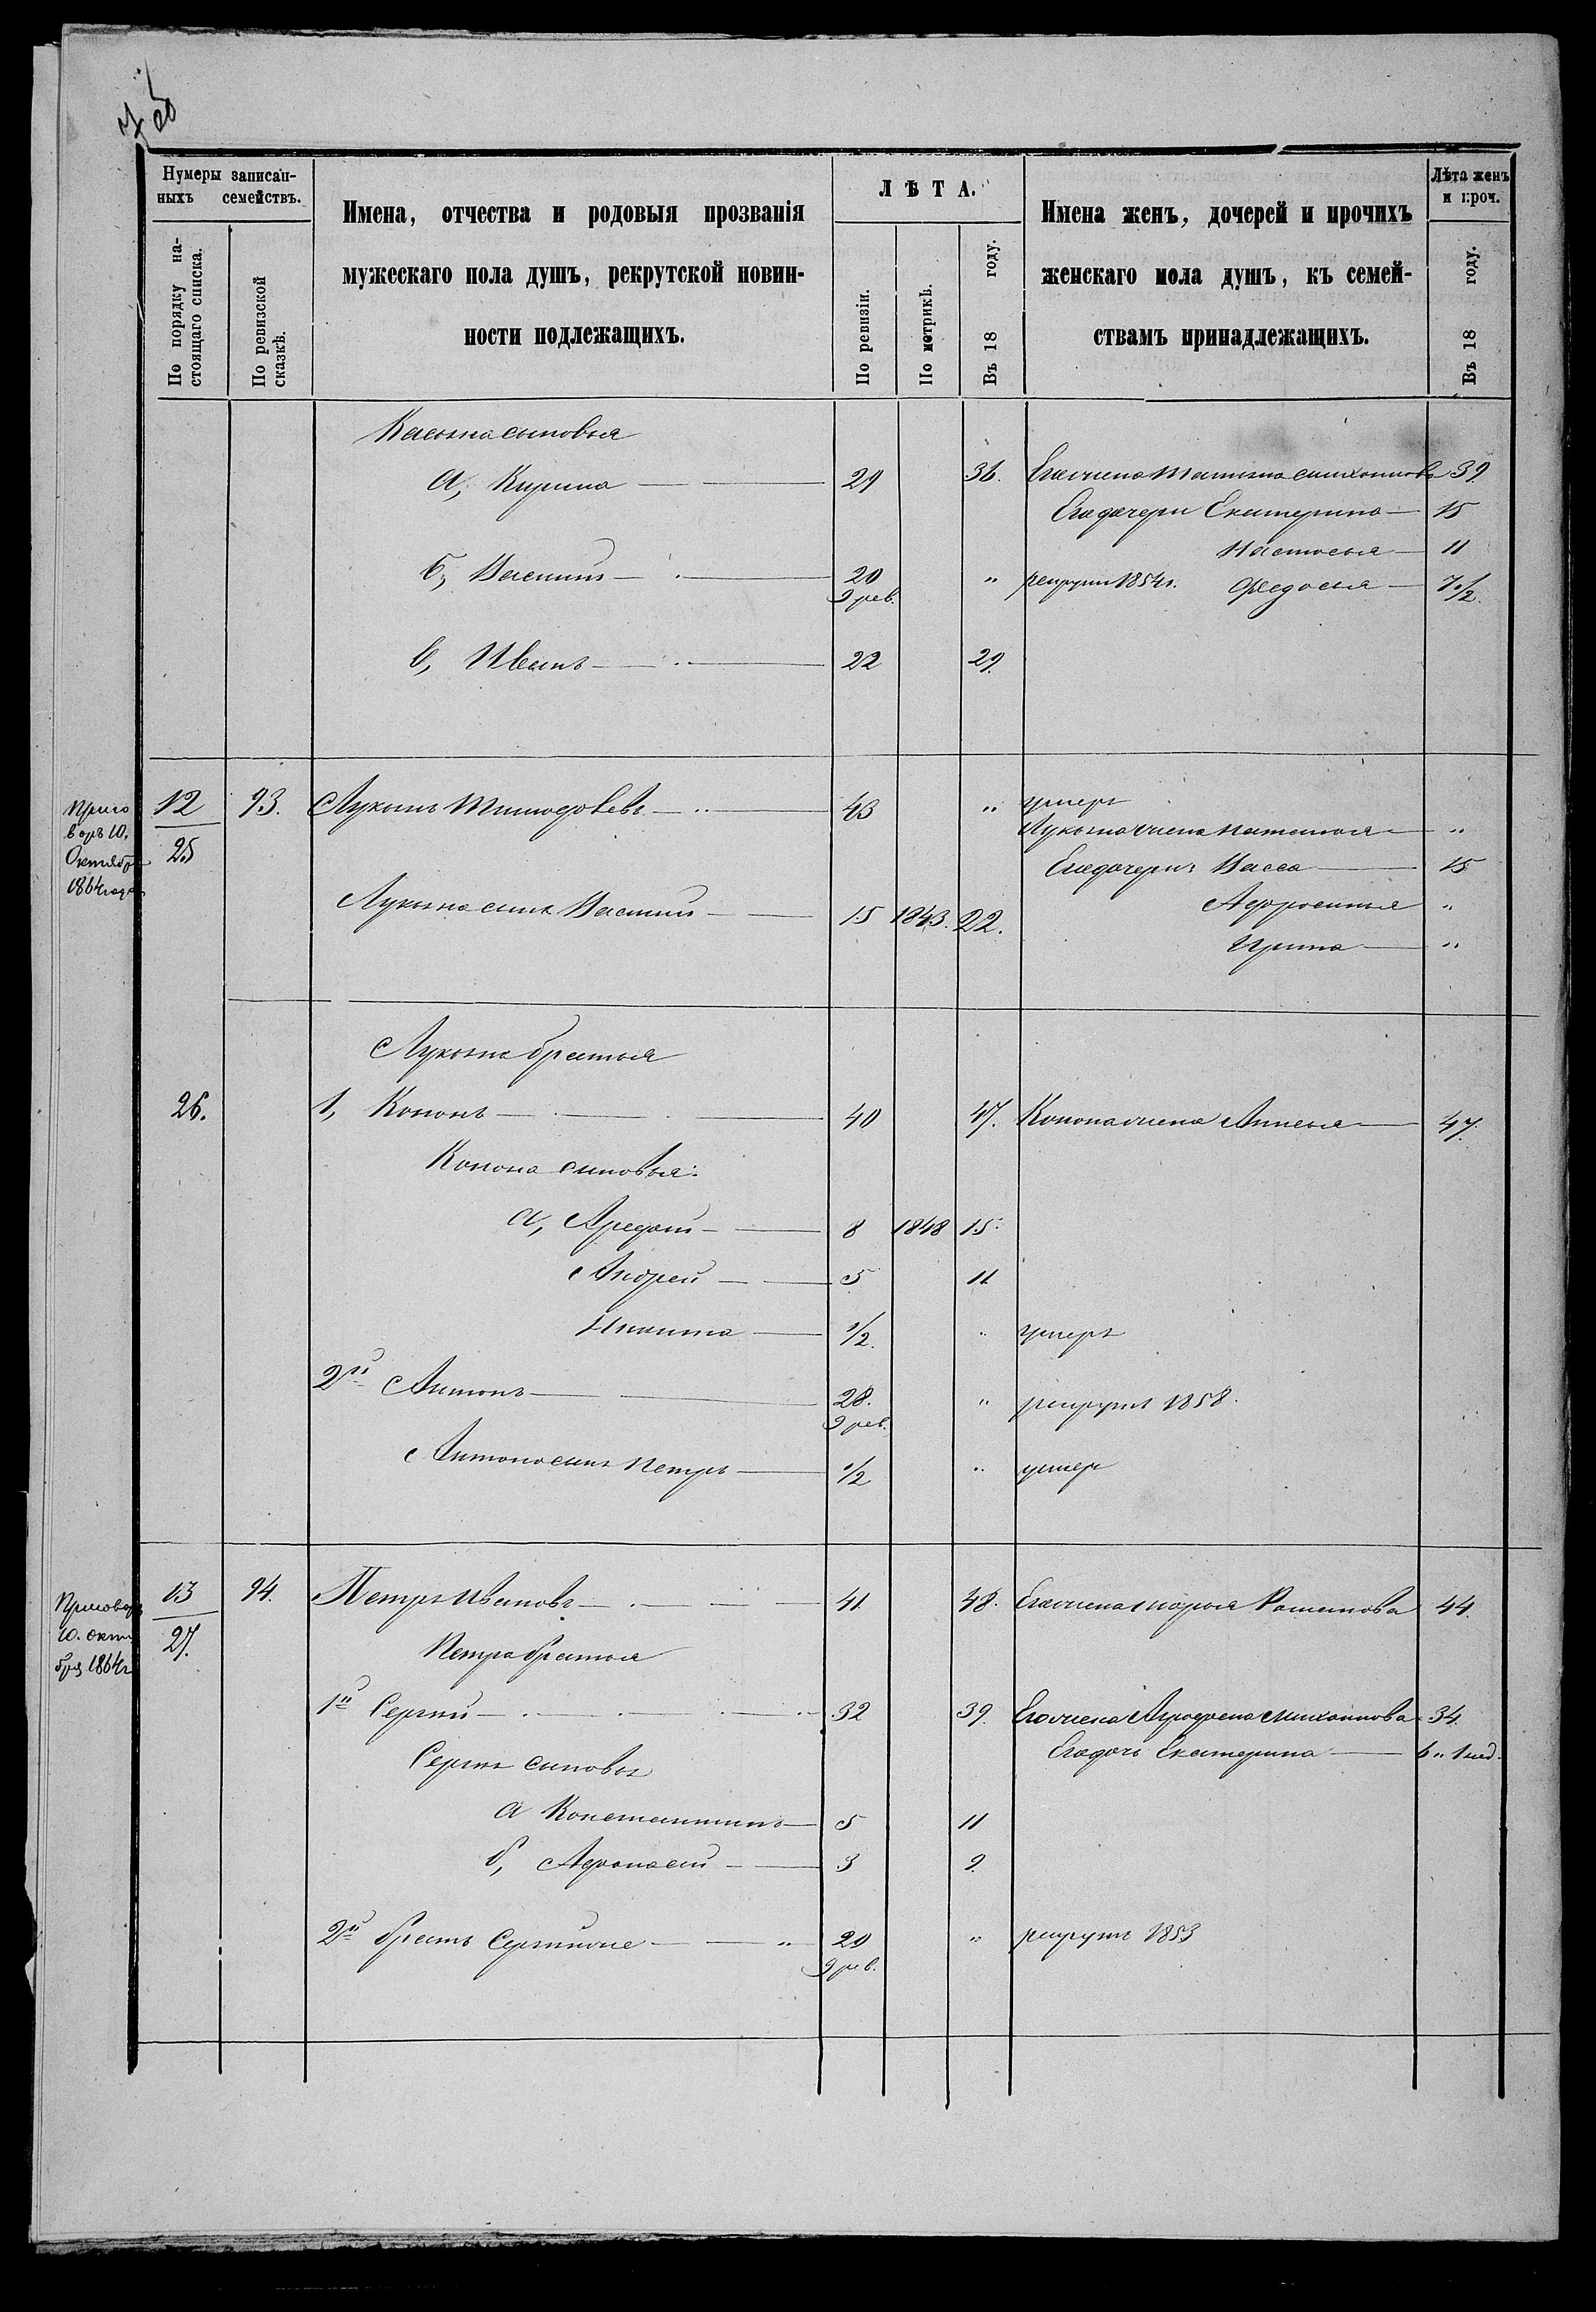 Нумеры записан-
ныхъ семействъ.
По порядку на-
стоящаго списка.
По ревизской
сказкѣ.
Имена, отчества и родовыя прозванія
мужескаго пола душъ, рекрутской повин-
ности подлежащихъ.
ЛѢТА.
По ревизіи.
По метрикѣ.
Въ 18 году.
Имена женъ, дочерей и прочихъ
женскаго пола душъ, къ семей-
ствамъ принадлежащихъ.
Лѣта женъ
и проч.
Въ 18 году.
сыновья
а, Кирила 29 36. Его жена 39
Его дочери Екатерина 15
Настасья 11
б, Василий 20 " рекрутъ 1854 г. Федосья 7 1/2
9 рев.
в, Иванъ 22 29
Приго
воръ 10.
Октября
1864 года
12 93. Лукьянъ Тимофеевъ 43 " умеръ
25
Лукьяна жена Наталья "
Его дочери Васса 15
Лукьяна сынъ Василий 15 1843. 22.
Афросинья "
Ирина "
Лукьяна братья
26. 1, Кононъ 40 47. Конона жена Аннисья 47.
Конона сыновья:
а, 8 1848 15.
Андрей 5 11
Никита 1/2 " умеръ
2й Антонъ 28. " рекрутъ 1858.
9 рев.
Антона сынъ Петръ 1/2 " умеръ
Приговоръ
10. октя
бря 1864 г
13 94. Петръ Ивановъ 41 48. Его жена Марья 44.
27.
Петра братья
1й Сергий 32 39. Его жена Аграфена Михайлова 34.
Его дочь Екатерина 6 " 1 нед.
Сергия сыновья
а Константинъ 5 11
б, Афонасий 3 9.
2й братъ 20 " рекрутъ 1853
9 рев.